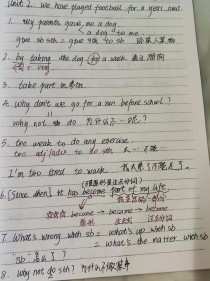 Unit 2. We have played football for a year now.
1. My parents gave me a dog.
a dog to me.
give sb sth = give sth to sb 给某人某物
2. by taking the dog for a walk 通过
3. take part in 参加
4. Why don't we go for a run before school?
why not do 为什么不…呢?
5. too weak to do any exercise
too adj/adv to do sth 太…不能
I'm too tired to walk 我太累了不能走了
6. [Since then] it has become part of my life
become → became → become
7. What's wrong with sb = what's up with sb
= what's the matter with sb
sb 怎么了?
8. Why not do sth? 为什么不做某事